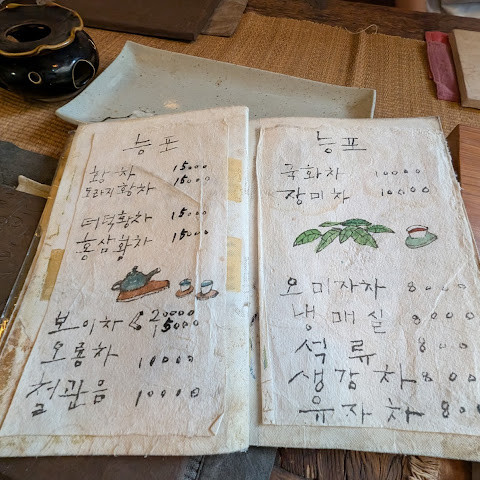 능포
황차 15000
도라지황차 15000
더덕황차 15000
홍삼황차 15000
보이차 20000
15000
오룡차 10000
철관음 10000
능포
국화차 10000
장미차 10000
오미자차 8000
냉매실 8000
석류 800
생강차 800
유자차 800